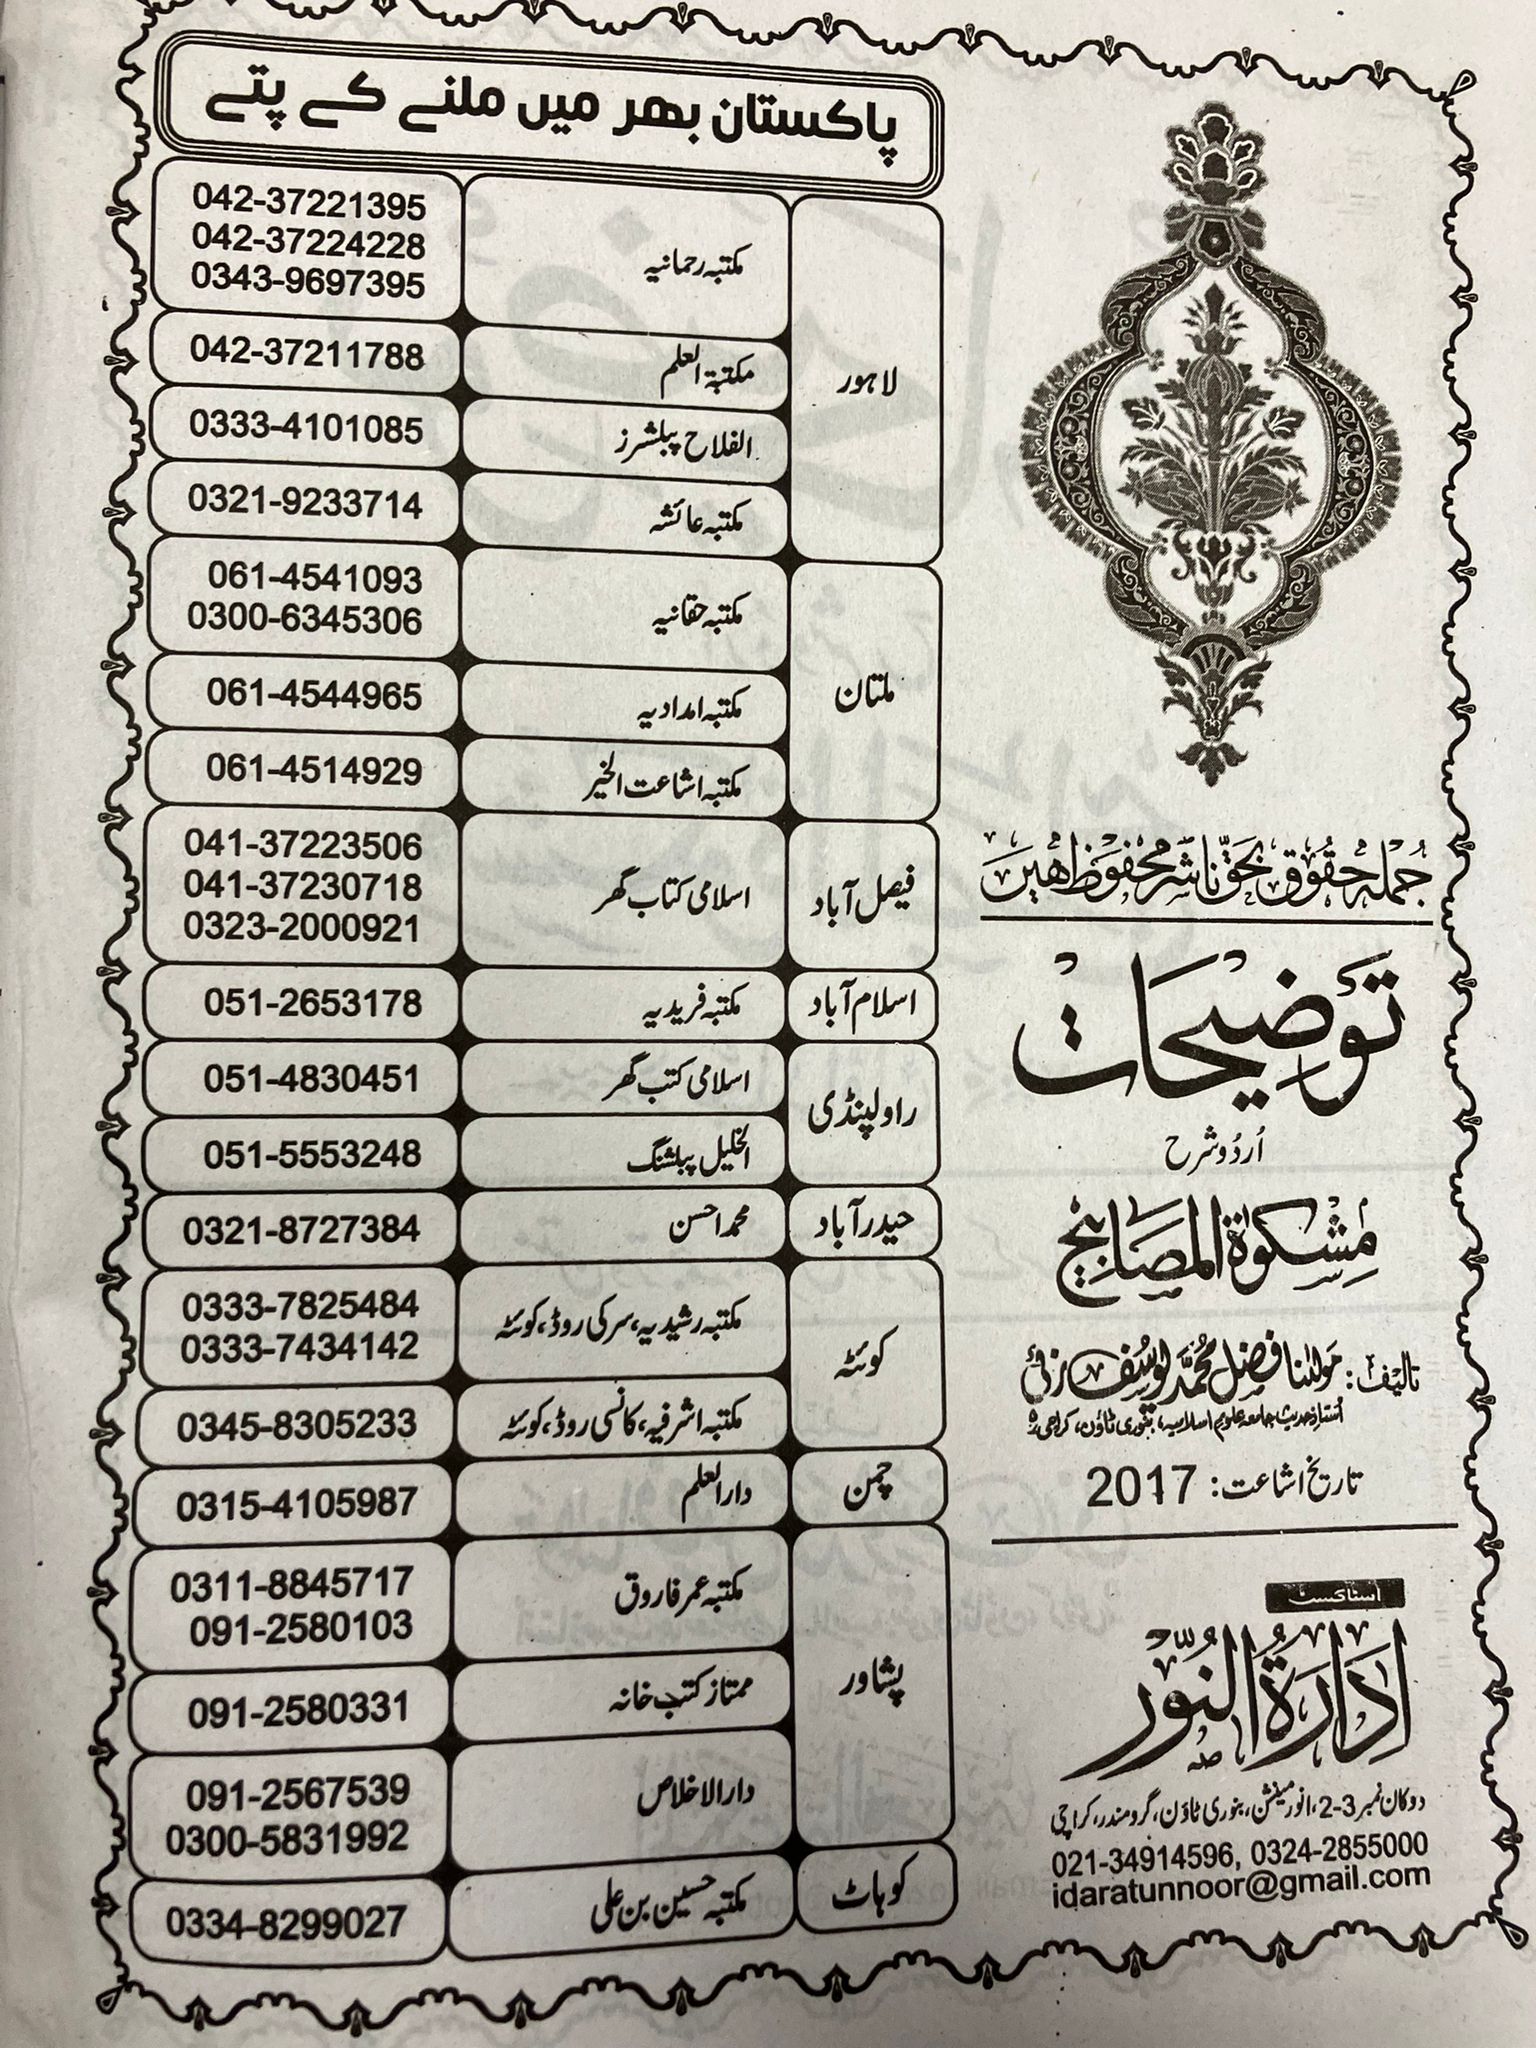 پاکستان بھر میں ملنے کے پتے
لاہور
مکتبہ رحمانیہ
042-37221395
042-37224228
0343-9697395
مکتبۃ العلم
042-37211788
الفلاح پبلشرز
0333-4101085
مکتبہ عائشہ
0321-9233714
ملتان
مکتبہ حقانیہ
061-4541093
0300-6345306
مکتبہ امدادیہ
061-4544965
مکتبہ اشاعت الخیر
061-4514929
فیصل آباد
اسلامی کتاب گھر
041-37223506
041-37230718
0323-2000921
اسلام آباد
مکتبہ فریدیہ
051-2653178
راولپنڈی
اسلامی کتب گھر
051-4830451
الخلیل پبلشنگ
051-5553248
حیدر آباد
محمد احسن
0321-8727384
کوئٹہ
مکتبہ رشیدیہ، سرکی روڈ، کوئٹہ
0333-7825484
0333-7434142
مکتبہ اشرفیہ، کانسی روڈ، کوئٹہ
0345-8305233
چمن
دارالعلم
0315-4105987
پشاور
مکتبہ عمر فاروق
0311-8845717
091-2580103
ممتاز کتب خانہ
091-2580331
دارالاخلاص
091-2567539
0300-5831992
کوہاٹ
مکتبہ حسین بن علی
0334-8299027
جملہ حقوق بحق ناشر محفوظ ھیں
توضیحات
اُردو شرح
مشکوۃ المصابیح
تالیف: مولانا فضل محمد یوسف زئی
اُستاذ حدیث جامعہ علوم اسلامیہ، بنوری ٹاؤن، کراچی ۵
تاریخ اشاعت: 2017
اسٹاکسٹ
ادارۃ النور
دوکان نمبر 3-2، انور مینشن، بنوری ٹاؤن، گرومندر، کراچی
021-34914596, 0324-2855000
idaratunnoor@gmail.com